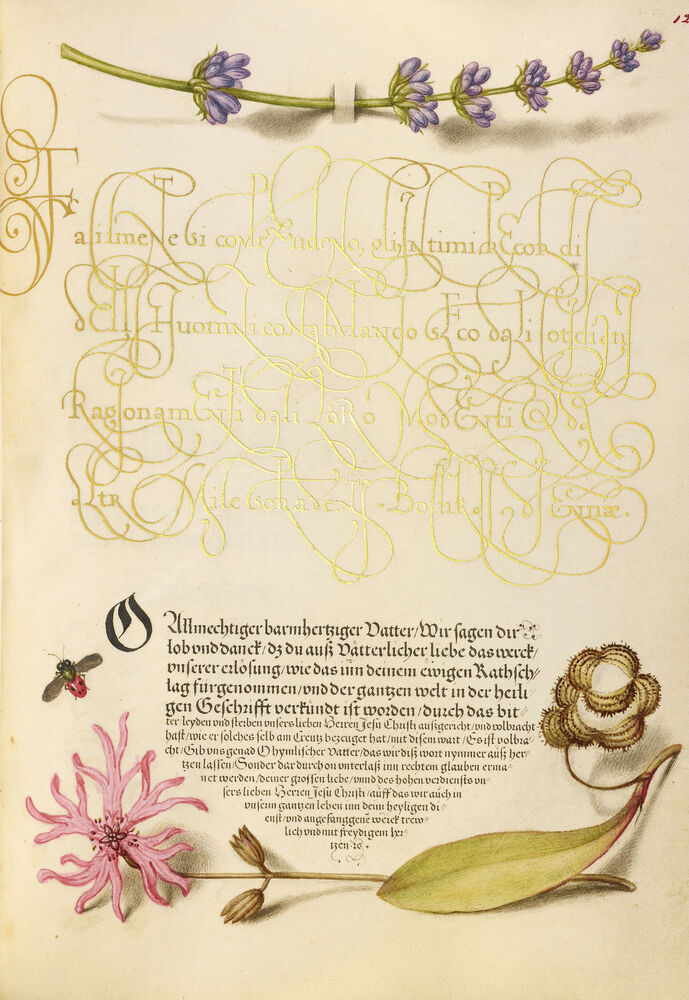 12
Facilmente si comprendeno, gl'intimi Recordi
dell Huomini confabulando Seco dali otdian
Ragionamenti dali loro Modesti O da
Altr
O Allmechtiger barmhertziger Vatter/Wir sagen dir
lob vnd danck/dz du auß Vätterlicher liebe das werck/
vnserer erlösung/wie das inn deinem ewigen Rathsch/
lag fürgenommen/vnd der gantzen welt in der heili/
gen Geschrifft verkündt ist worden/durch das bit/
ter leyden vnd sterben vnsers lieben Herren Jesu Christi außgericht/vnd volbracht
hast/wie er solches selb am Creutz bezeuget hat/mit disem wart/Es ist volbra/
cht/Gib vns genad O hymlischer Vatter/das wir diß wort nymmer auß her/
tzen lassen/Sonder dardurch on vnterlaß inn rechtem glauben erma/
net werden/deiner grossen liebe/vnnd des hohen verdiensts vn/
sers lieben Herren Jesu Christi/auff das wir auch in
vnserm gantzen leben inn deim heyligen di/
enst/vnd angefanggene werck trew/
lich vnd mit freydigem her/
tzen ꝛc.